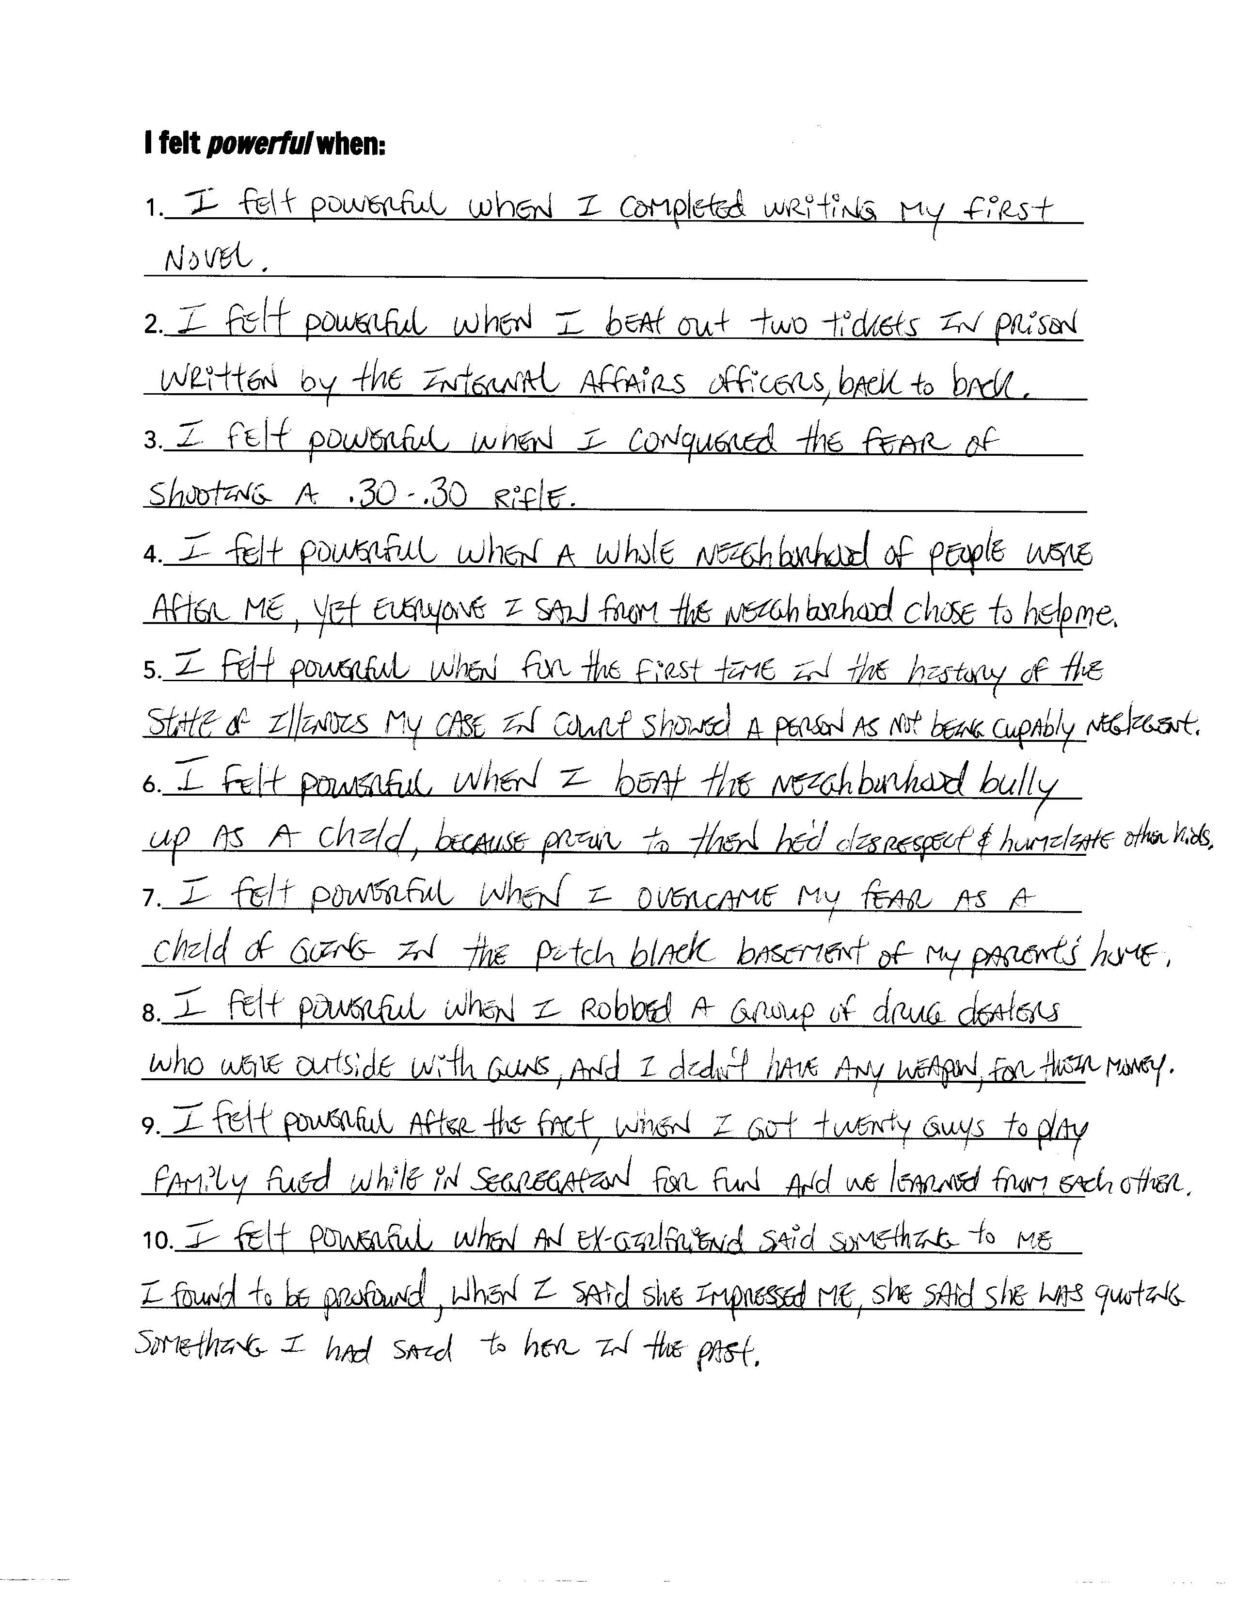 I felt powerful when:
1. I felt powerful when I completed writing my first
Novel.
2. I felt powerful when I beat out two tickets in prison
written by the Internal Affairs officers, back to back.
3. I felt powerful when I conquered the fear of
shooting a .30-.30 Rifle.
4. I felt powerful when a whole neighborhood of people were
after me, yet everyone I saw from the neighborhood chose to help me.
5. I felt powerful when for the first time in the history of the
State of Illinois my case in court showed a person as not being cupably negligent.
6. I felt powerful when I beat the neighborhood bully
up as a child, because prior to then he'd disrespect & humiliate other kids.
7. I felt powerful when I overcame my fear as a
child of going in the pitch black basement of my parent's home.
8. I felt powerful when I robbed a group of drug dealers
who were outside with guns, and I didn't have any weapon, for their money.
9. I felt powerful after the fact, when I got twenty guys to play
family fued while in segregation for fun and we learned from each other.
10. I felt powerful when an ex-girlfriend said something to me
I found to be profound, when I said she impressed me, she said she was quoting
something I had said to her in the past.